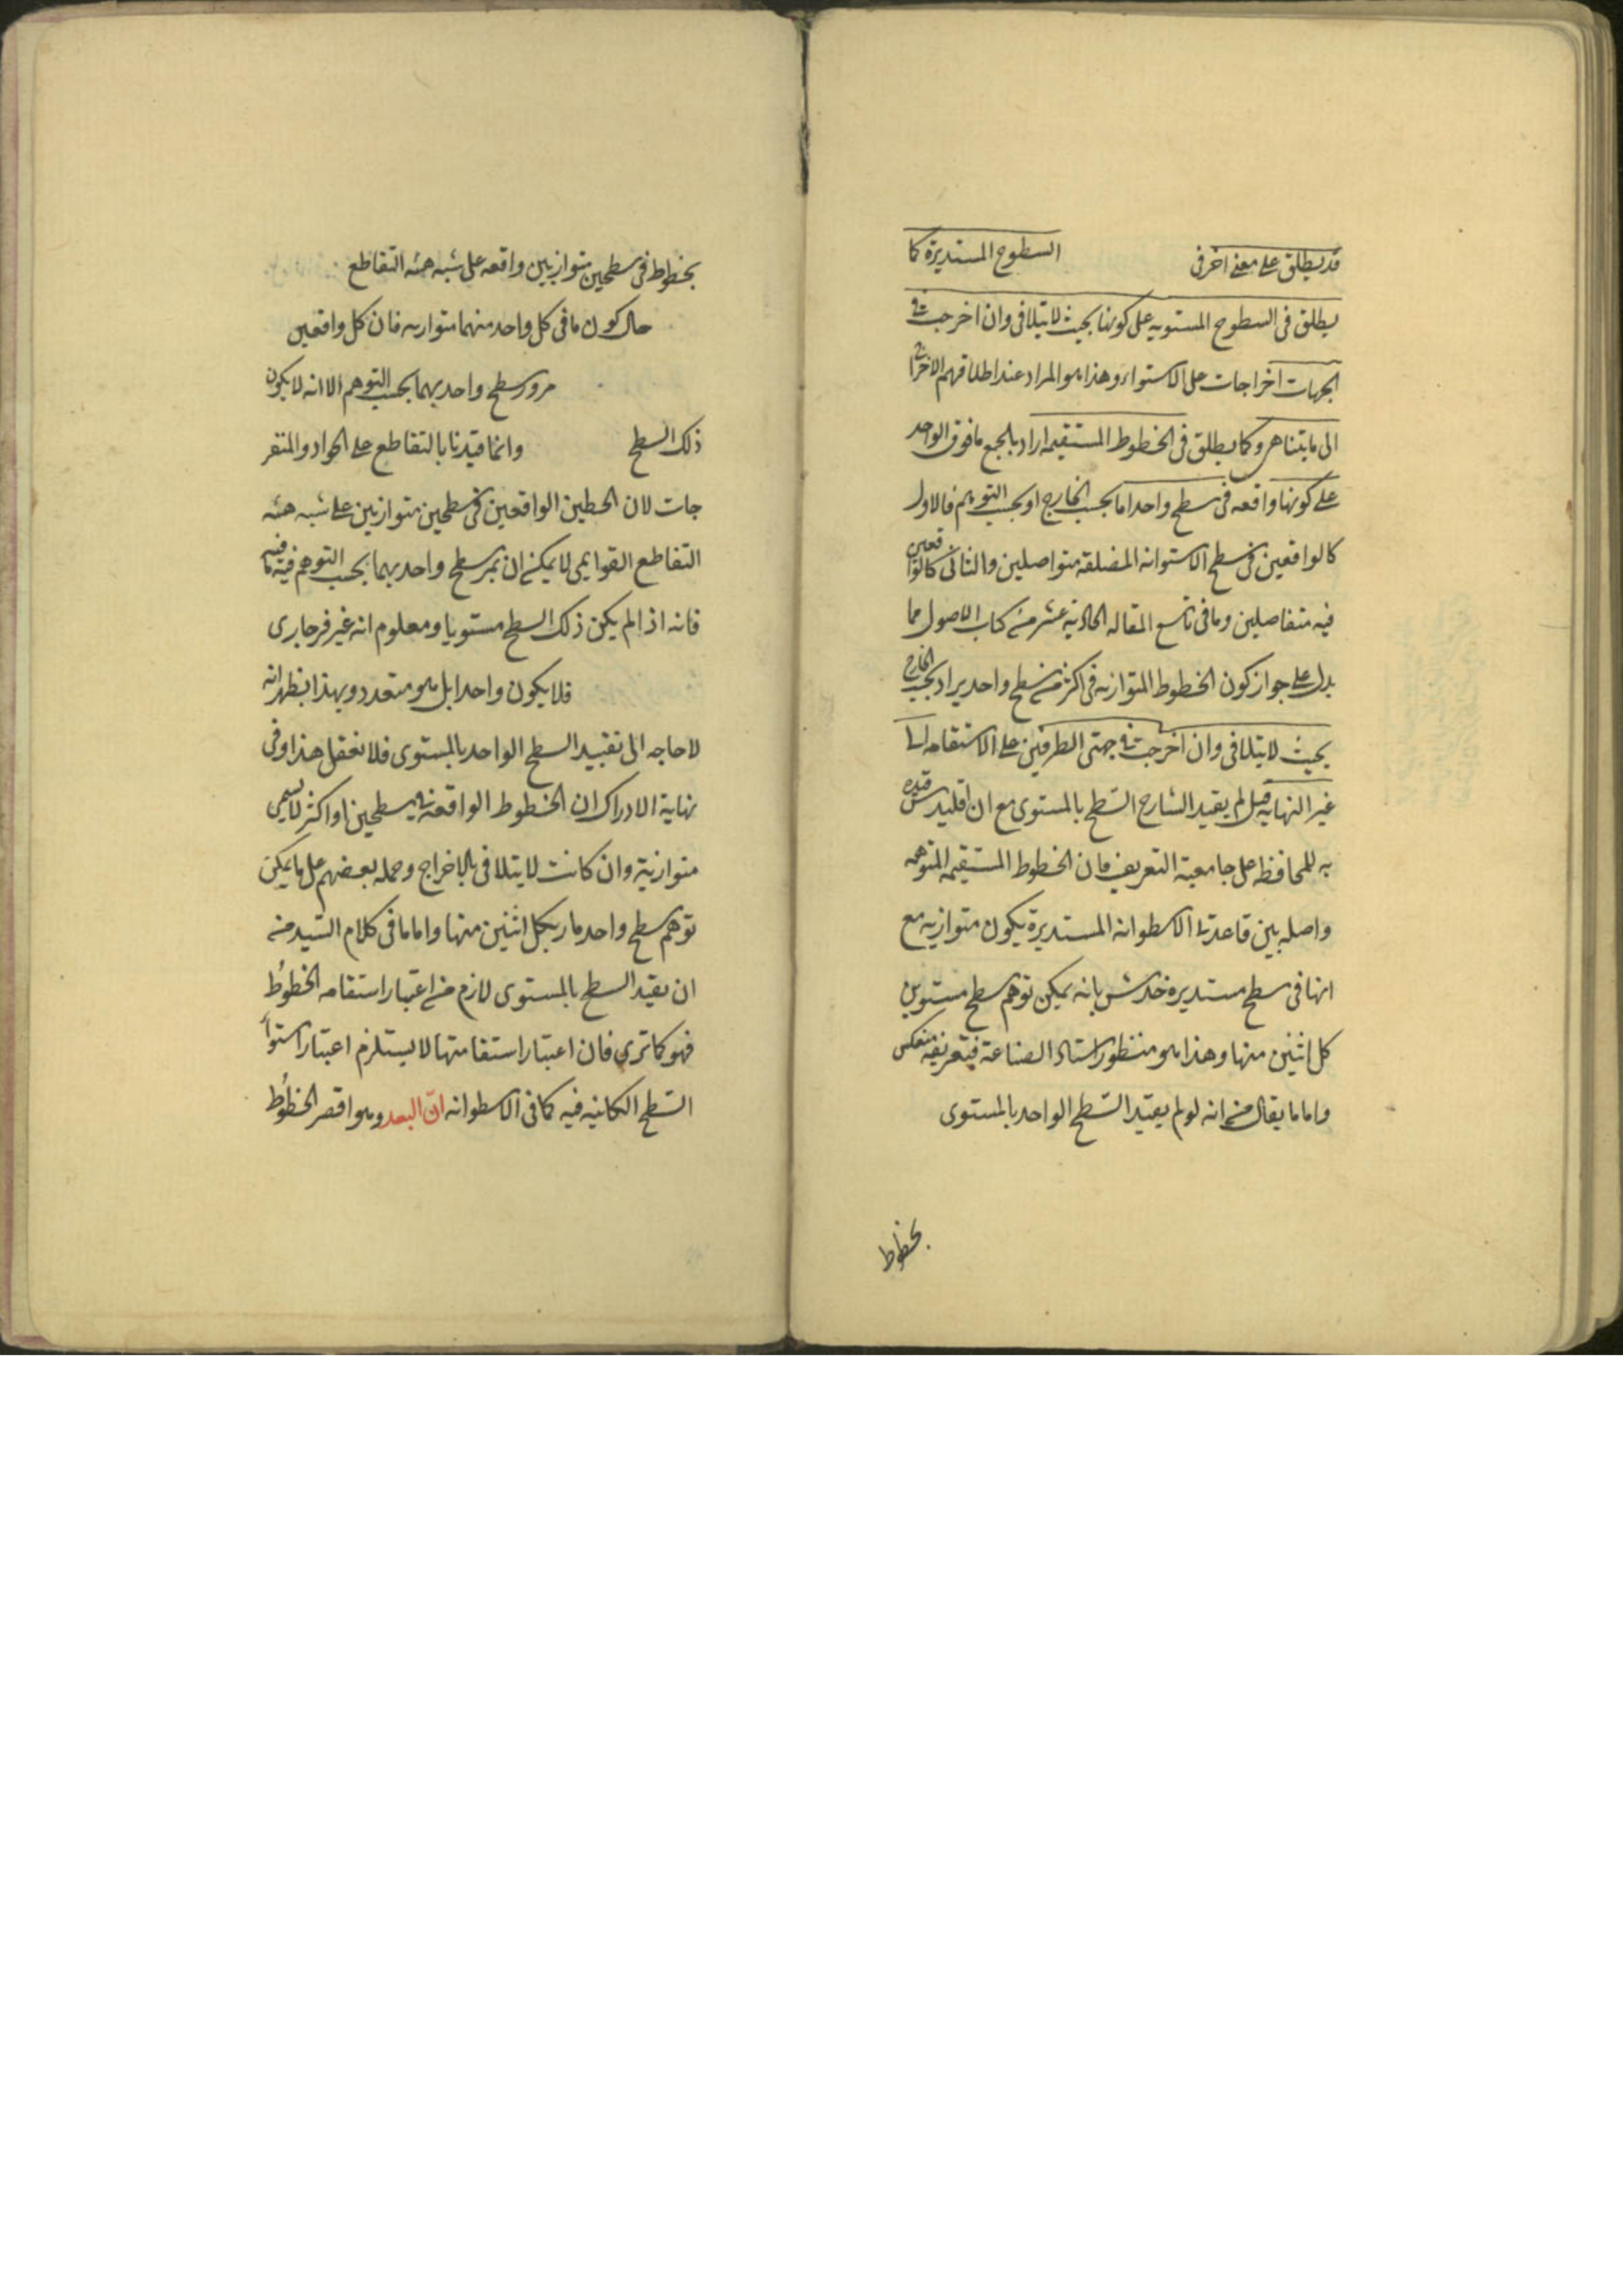 قد يطلق على معنى اخر فى السطوح المستديرة كما
يطلق فى السطوح المستويه على كونها بحيث لا يتلاقى وان اخرجت فى
الجهات اخراجات على الاستواء وهذا هو المراد عند اطلاقهم الاخراج
الى ما يتناهى وكما يطلق فى الخطوط المستقيمه اراد بالجمع ما فوق الواحد
على كونها واقعه فى سطح واحد اما بحسب الخارج او بحسب التوهم فالاول
كالواقعين فى سطح الاستوانه المضلقه متواصلين والثانى كالواقعين
فيه متفاصلين وما فى تاسع المقاله الحاديه عشر من كتاب الاصول مما
يدل على جواز كون الخطوط المتوازيه فى اكثر من سطح واحد يراد بحسب الخارج
بحيث لا يتلاقى وان اخرجت فى جهتى الطرفين على الاستقامه الى
غير النهايه قيل لم يقيد الشارح السطح بالمستوى مع ان اقليدس قيده
به للمحافظه على جامعية التعريف فان الخطوط المستقيمه المتوهمه
واصله بين قاعدتى الاسطوانه المستديرة يكون متوازيه مع
انها فى سطح مستديره خدش بانه يمكن توهم سطح مستو بين
كل اثنين منها وهذا هو منظور استاد الصناعة فتعريفه منعكس
واما ما يقال من انه لو لم يعتيد السطح الواحد بالمستوى
بخطوط
بخطوط فى سطحين متوازيين واقعه على شبه هيئه التقاطع
حال كون ما فى كل واحد منهما متوازيه فان كل واقعين
مرور سطح واحد بهما بحسب التوهم الا انه لا يكون
ذلك السطح وانما قيدنا بالتقاطع على الحواد والمنفر
جات لان الخطين الواقعين فى سطحين متوازيين على شبه هيئه
التقاطع القوايمى لا يمكن ان يمر سطح واحد بهما بحسب التوهم فيه ما فيه
فانه اذا لم يكن ذلك السطح مستويا ومعلوم انه غير فرجارى
فلا يكون واحدا بل هو متعدد وبهذا يظهر انه
لا حاجه الى تقييد السطح الواحد بالمستوى فلا تغفل هذا وفى
نهاية الادراك ان الخطوط الواقعة فى سطحين او اكثر لا يسمى
متوازية وان كانت لا يتلاقى بالاخراج وحمله بعضهم على ما يمكن
توهم سطح واحد مار بكل اثنين منها واما ما فى كلام السيد من
ان يقيد السطح بالمستوى لازم من اعتبار استقامه الخطوط
فهو كما ترى فان اعتبار استقامتها لا يستلزم اعتبار استواء
السطح الكائنه فيه كما فى الاسطوانه ان البعد وهو اقصر الخطوط